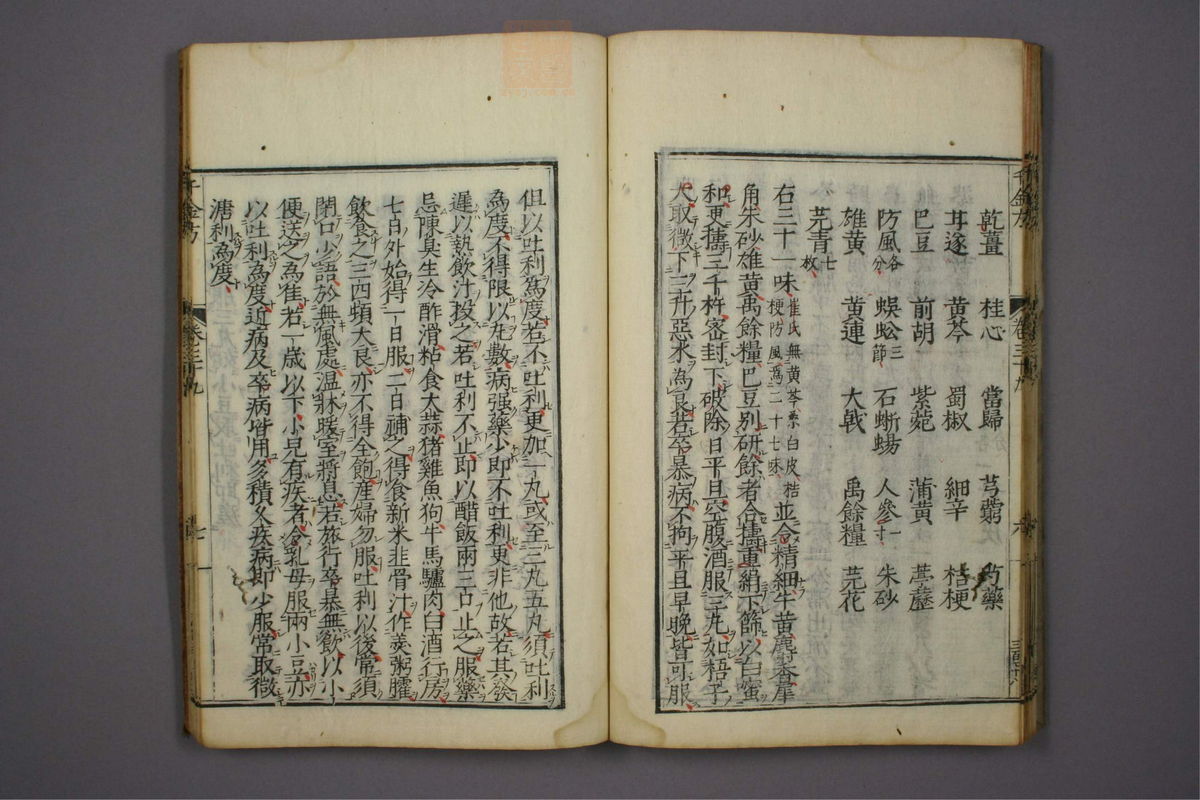 乾薑 桂心 當歸 芎藭 芍藥
耳遂 黃芩 蜀椒 細辛 桔梗
巴豆 前胡 紫菀 蒲黃 葶藶
防風各分 蜈蚣三節 石蜥蜴 人參一寸 朱砂
雄黃 黃連 大戟 禹餘糧 芫花
芫青七枚
右三十一味崔氏無黃芩桑白皮桔梗防風爲二十七味並合精細牛黃麝香犀
角朱砂雄黃禹餘糧巴豆別研餘者合擣重絹下篩以白蜜
和更擣三千杵密封下破除日平旦空腹酒服三丸如梧子
大取微下三升惡水為良若卒暴病不拘平旦早晚皆可服
但以吐利為度若不吐利更加一丸或至三丸五丸須吐利
為度不得限以丸數病强藥少即不吐利更非他故若其發
遲以熱飲汁投之若吐利不止即以醋飯兩三口止之服藥
忌陳臭生冷酢滑粘食大蒜猪雞魚狗牛馬驢肉白酒行房
七日外始得一日服二日補之得食新米韭骨汁作羹粥臛
飲食之三四頓大良亦不得全飽産婦勿服吐利以後常須
閉口少語於無風處温牀暖室將息若旅行卒暴無飲以小
便送之為佳若一歲以下小兒有疾者令乳母服兩小豆亦
以吐利為度近病及卒病皆用多積久疾病即少服常取微
溏利為度
千金方 卷三十九 七